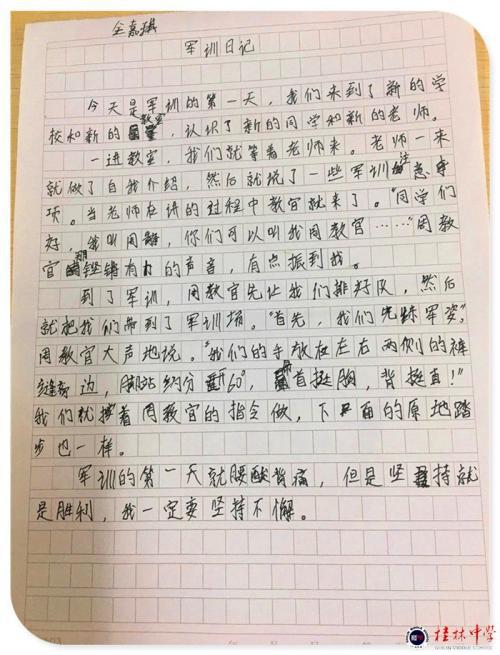 全嘉琪
军训日记
今天是军训的第一天，我们来到了新的学
校和新的教室，认识了新的同学和新的老师。
一进教室，我们就等着老师来。老师一来
就做了自我介绍，然后就说了一些军训注意事
项。当老师在讲的过程中教官就来了。“同学们
好，我叫周，你们可以叫我周教官……”周教
官那铿锵有力的声音，有点振到我。
到了军训，周教官先让我们排好队，然后
就把我们带到了军训场。“首先，我们先练军姿”，
周教官大声地说。“我们的手放在左右两侧的裤
缝边，脚站约分60°，昂首挺胸，背挺直！”
我们就按着周教官的指令做，下面的原地踏
步也一样。
军训的第一天就腰酸背痛，但是坚持就
是胜利，我一定要坚持不懈。
桂林中学
GUILIN MIDDLE SCHOOL